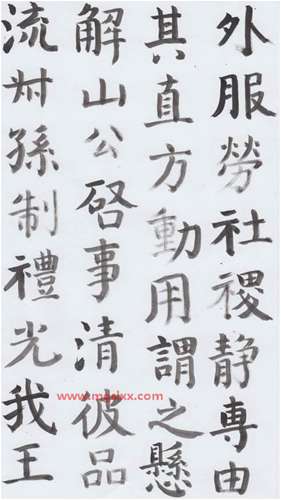 外服勞社稷静専由
其直方動用謂之懸
解山公啓事清彼品
流叔孫制禮光我王